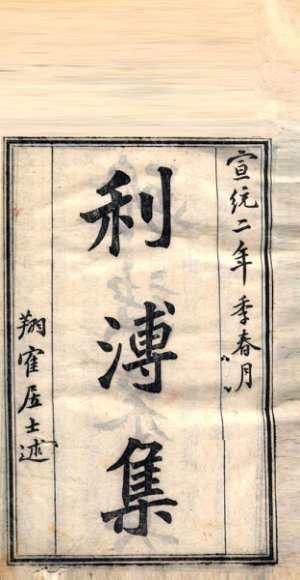 宣統二年季春月
利溥集
翔寉居士述